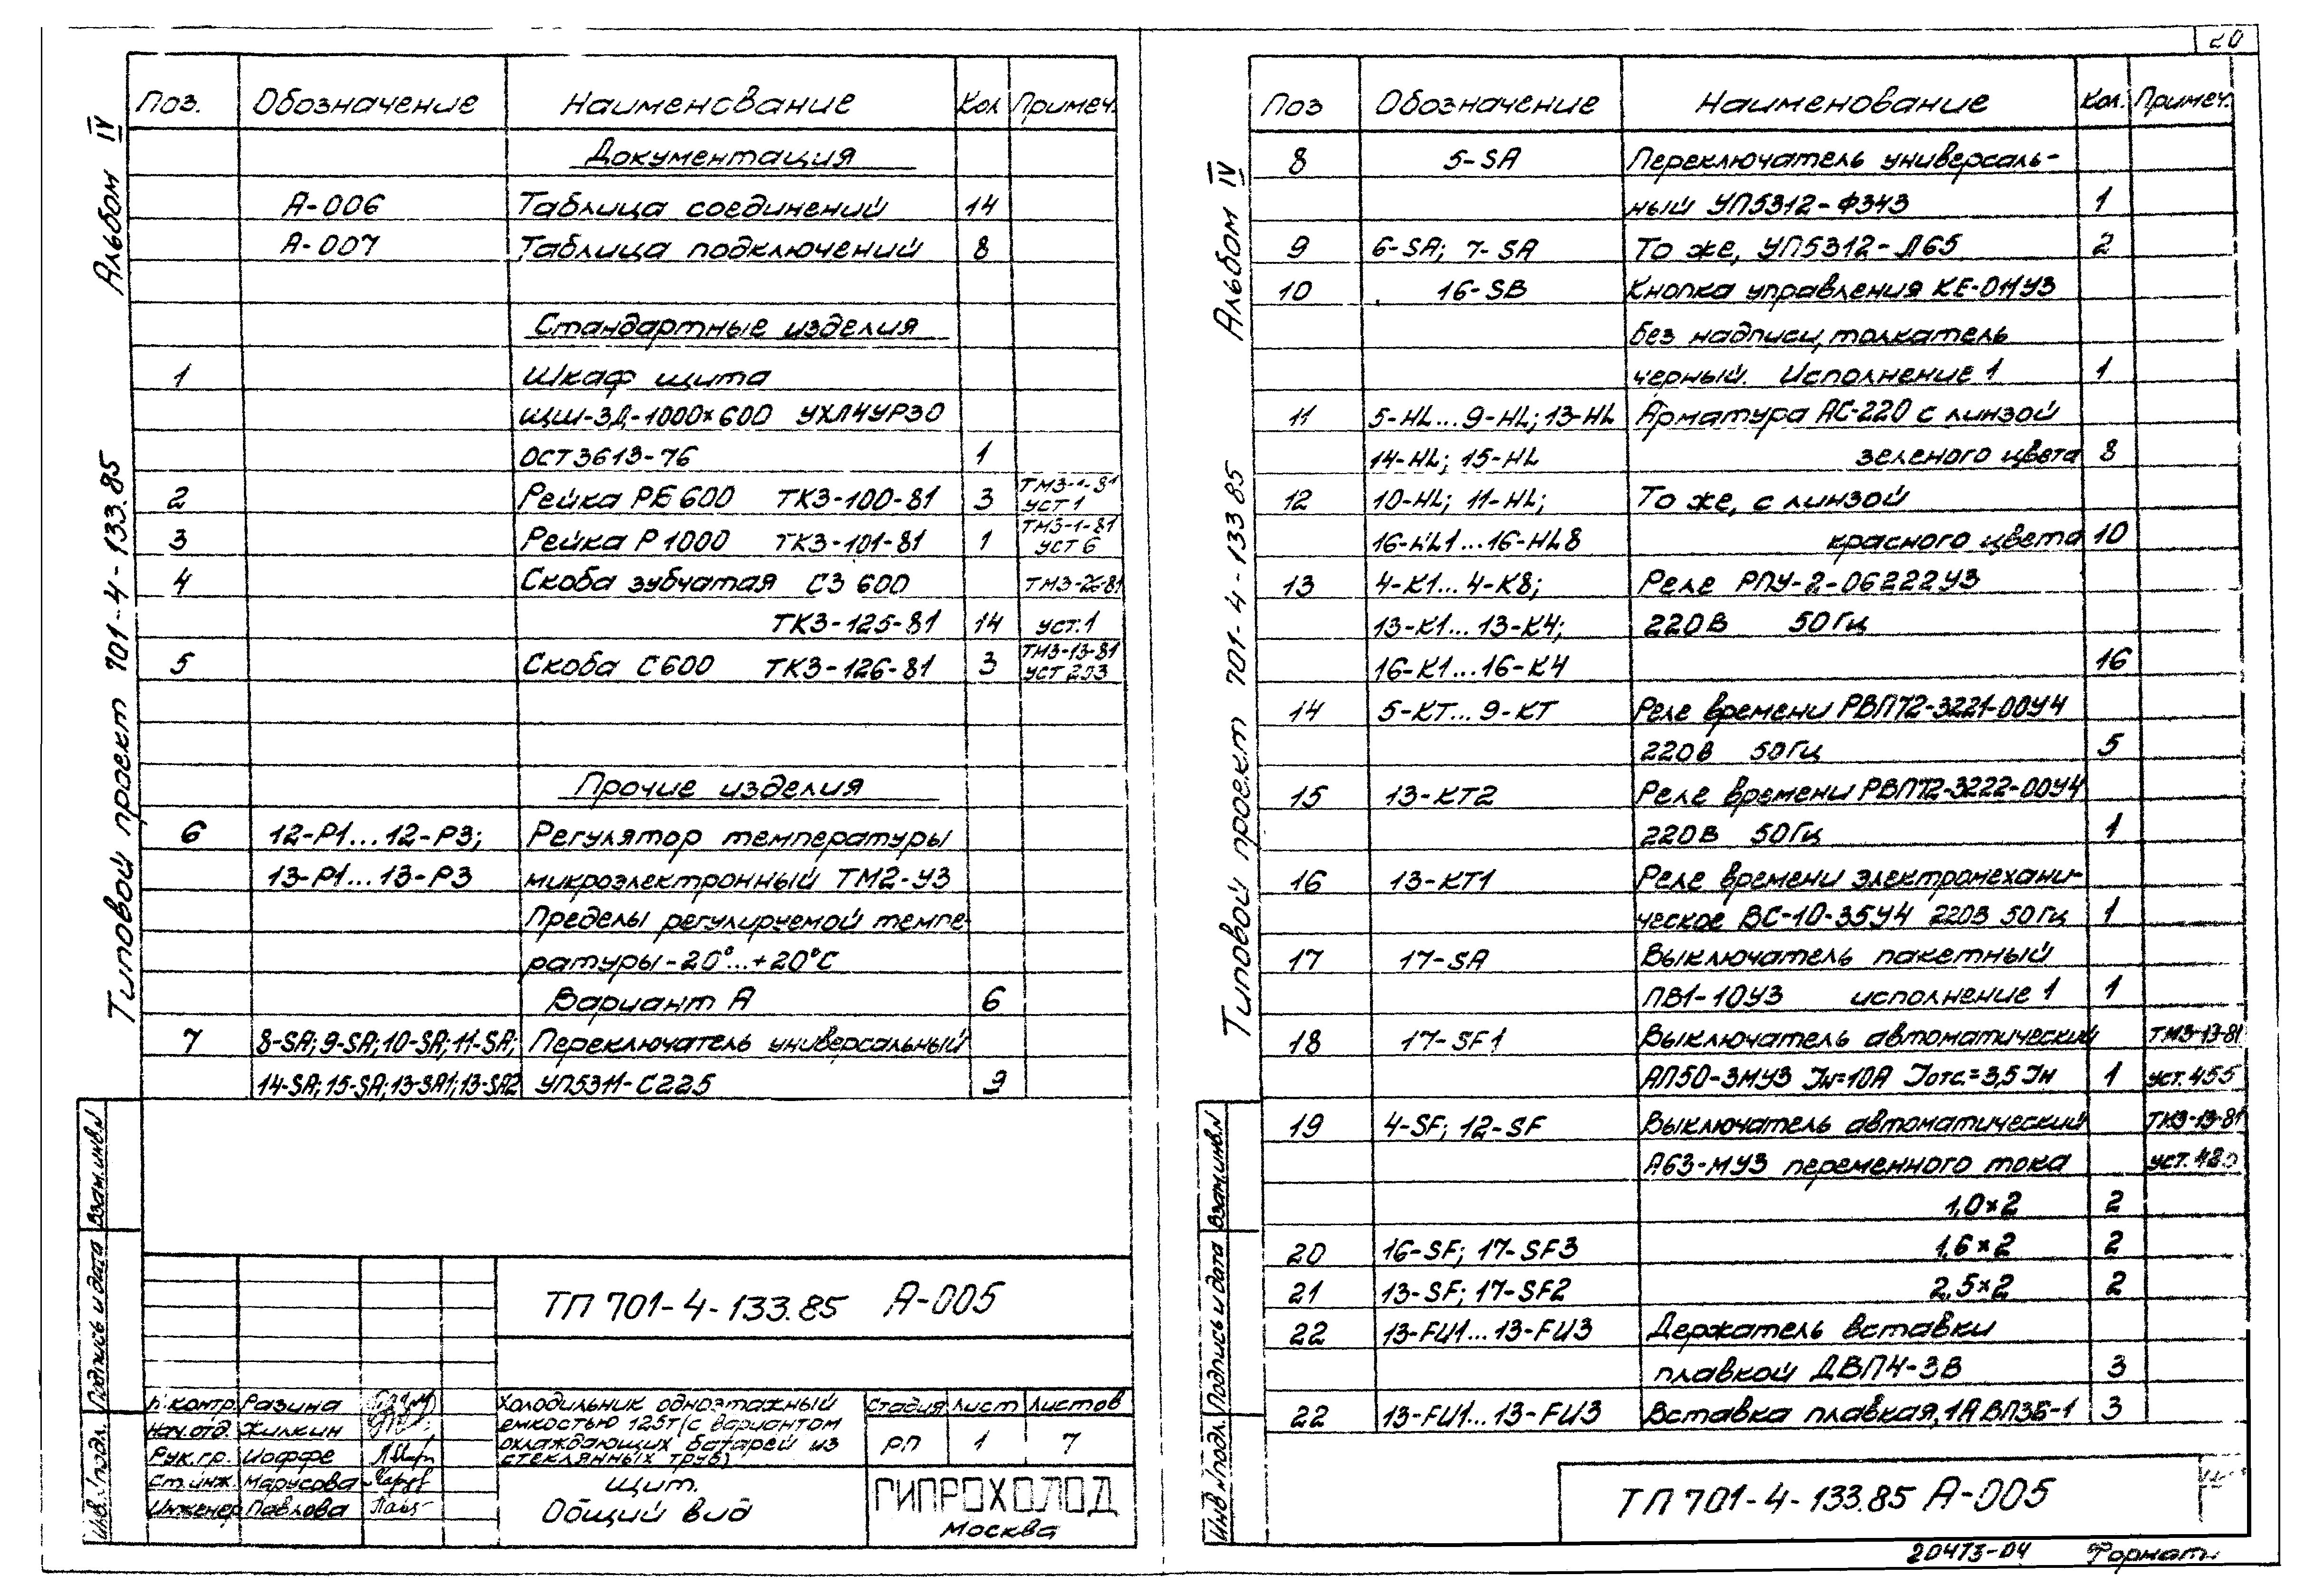 20
Альбом IV
Типовой проект 701-4-133.85
Поз. Обозначение Наименование Кол Примеч.
Документация
А-006 Таблица соединений 14
А-007 Таблица подключений 8
Стандартные изделия
1 Шкаф щита
ЩШ-ЗД-1000×600 УХЛ4УР30
ОСТ3613-76 1
2 Рейка РБ600 ТК3-100-81 3 ТМ3-1-81 уст 1
3 Рейка Р1000 ТК3-101-81 1 ТМ3-1-81 уст 6
4 Скоба зубчатая СЗ 600
ТК3-125-81 14 уст.1
5 Скоба С600 ТК3-126-81 3 ТМ3-13-81 уст 203
Прочие изделия
6 12-Р1...12-Р3; Регулятор температуры
13-Р1...13-Р3 микроэлектронный ТМ2-У3
Пределы регулируемой темпе-
ратуры -20°...+20°С
Вариант А 6
7 8-SA; 9-SA; 10-SA; 11-SA; Переключатель универсальный
14-SA; 15-SA; 13-SA1; 13-SA2 УП5311-С225 9
Взам.инв.N
Подпись и дата
Инв. N подл.
ТП 701-4-133.85 А-005
Н.контр. Разина
Нач.отд. Жилкин
Рук.гр. Иоффе
Ст.инж. Марусова
Инженер Павлова
Холодильник одноэтажный
емкостью 125т (с вариантом
охлаждающих батарей из
стеклянных труб)
Стадия Лист Листов
РП 1 7
Щит.
Общий вид
ГИПРОХОЛОД
Москва
Альбом IV
Типовой проект 701-4-133 85
Поз Обозначение Наименование Кол. Примеч.
8 5-SA Переключатель универсаль-
ный УП5312-Ф343 1
9 6-SA; 7-SA То же, УП5312-Л65 2
10 16-SB Кнопка управления КЕ-011У3
без надписи, толкатель
черный. Исполнение 1 1
11 5-HL...9-HL; 13-HL Арматура АС-220 с линзой
14-HL; 15-HL зеленого цвета 8
12 10-HL; 11-HL; То же, с линзой
16-HL1...16-HL8 красного цвета 10
13 4-К1...4-К8; Реле РПУ-2-06222У3
13-К1...13-К4; 220В 50Гц
16-К1...16-К4 16
14 5-КТ...9-КТ Реле времени РВП72-3221-00У4
220В 50Гц 5
15 13-КТ2 Реле времени РВП72-3222-00У4
220В 50Гц 1
16 13-КТ1 Реле времени электромехани-
ческое ВС-10-35У4 220В 50Гц 1
17 17-SA Выключатель пакетный
ПВ1-10У3 исполнение 1 1
18 17-SF1 Выключатель автоматический ТМ3-13-81
АП50-3МУ3 Iн=10А Iотс.=3,5 Iн 1 уст.455
19 4-SF; 12-SF Выключатель автоматический ТК3-13-81
А63-МУ3 переменного тока
1,0×2 2
20 16-SF; 17-SF3 1,6×2 2
21 13-SF; 17-SF2 2,5×2 2
22 13-FU1...13-FU3 Держатель вставки
плавкой ДВП4-3В 3
22 13-FU1...13-FU3 Вставка плавкая, 1А ВП3Б-1 3
Взам.инв.N
Подпись и дата
Инв N подл.
ТП 701-4-133.85 А-005
20473-04 Формат